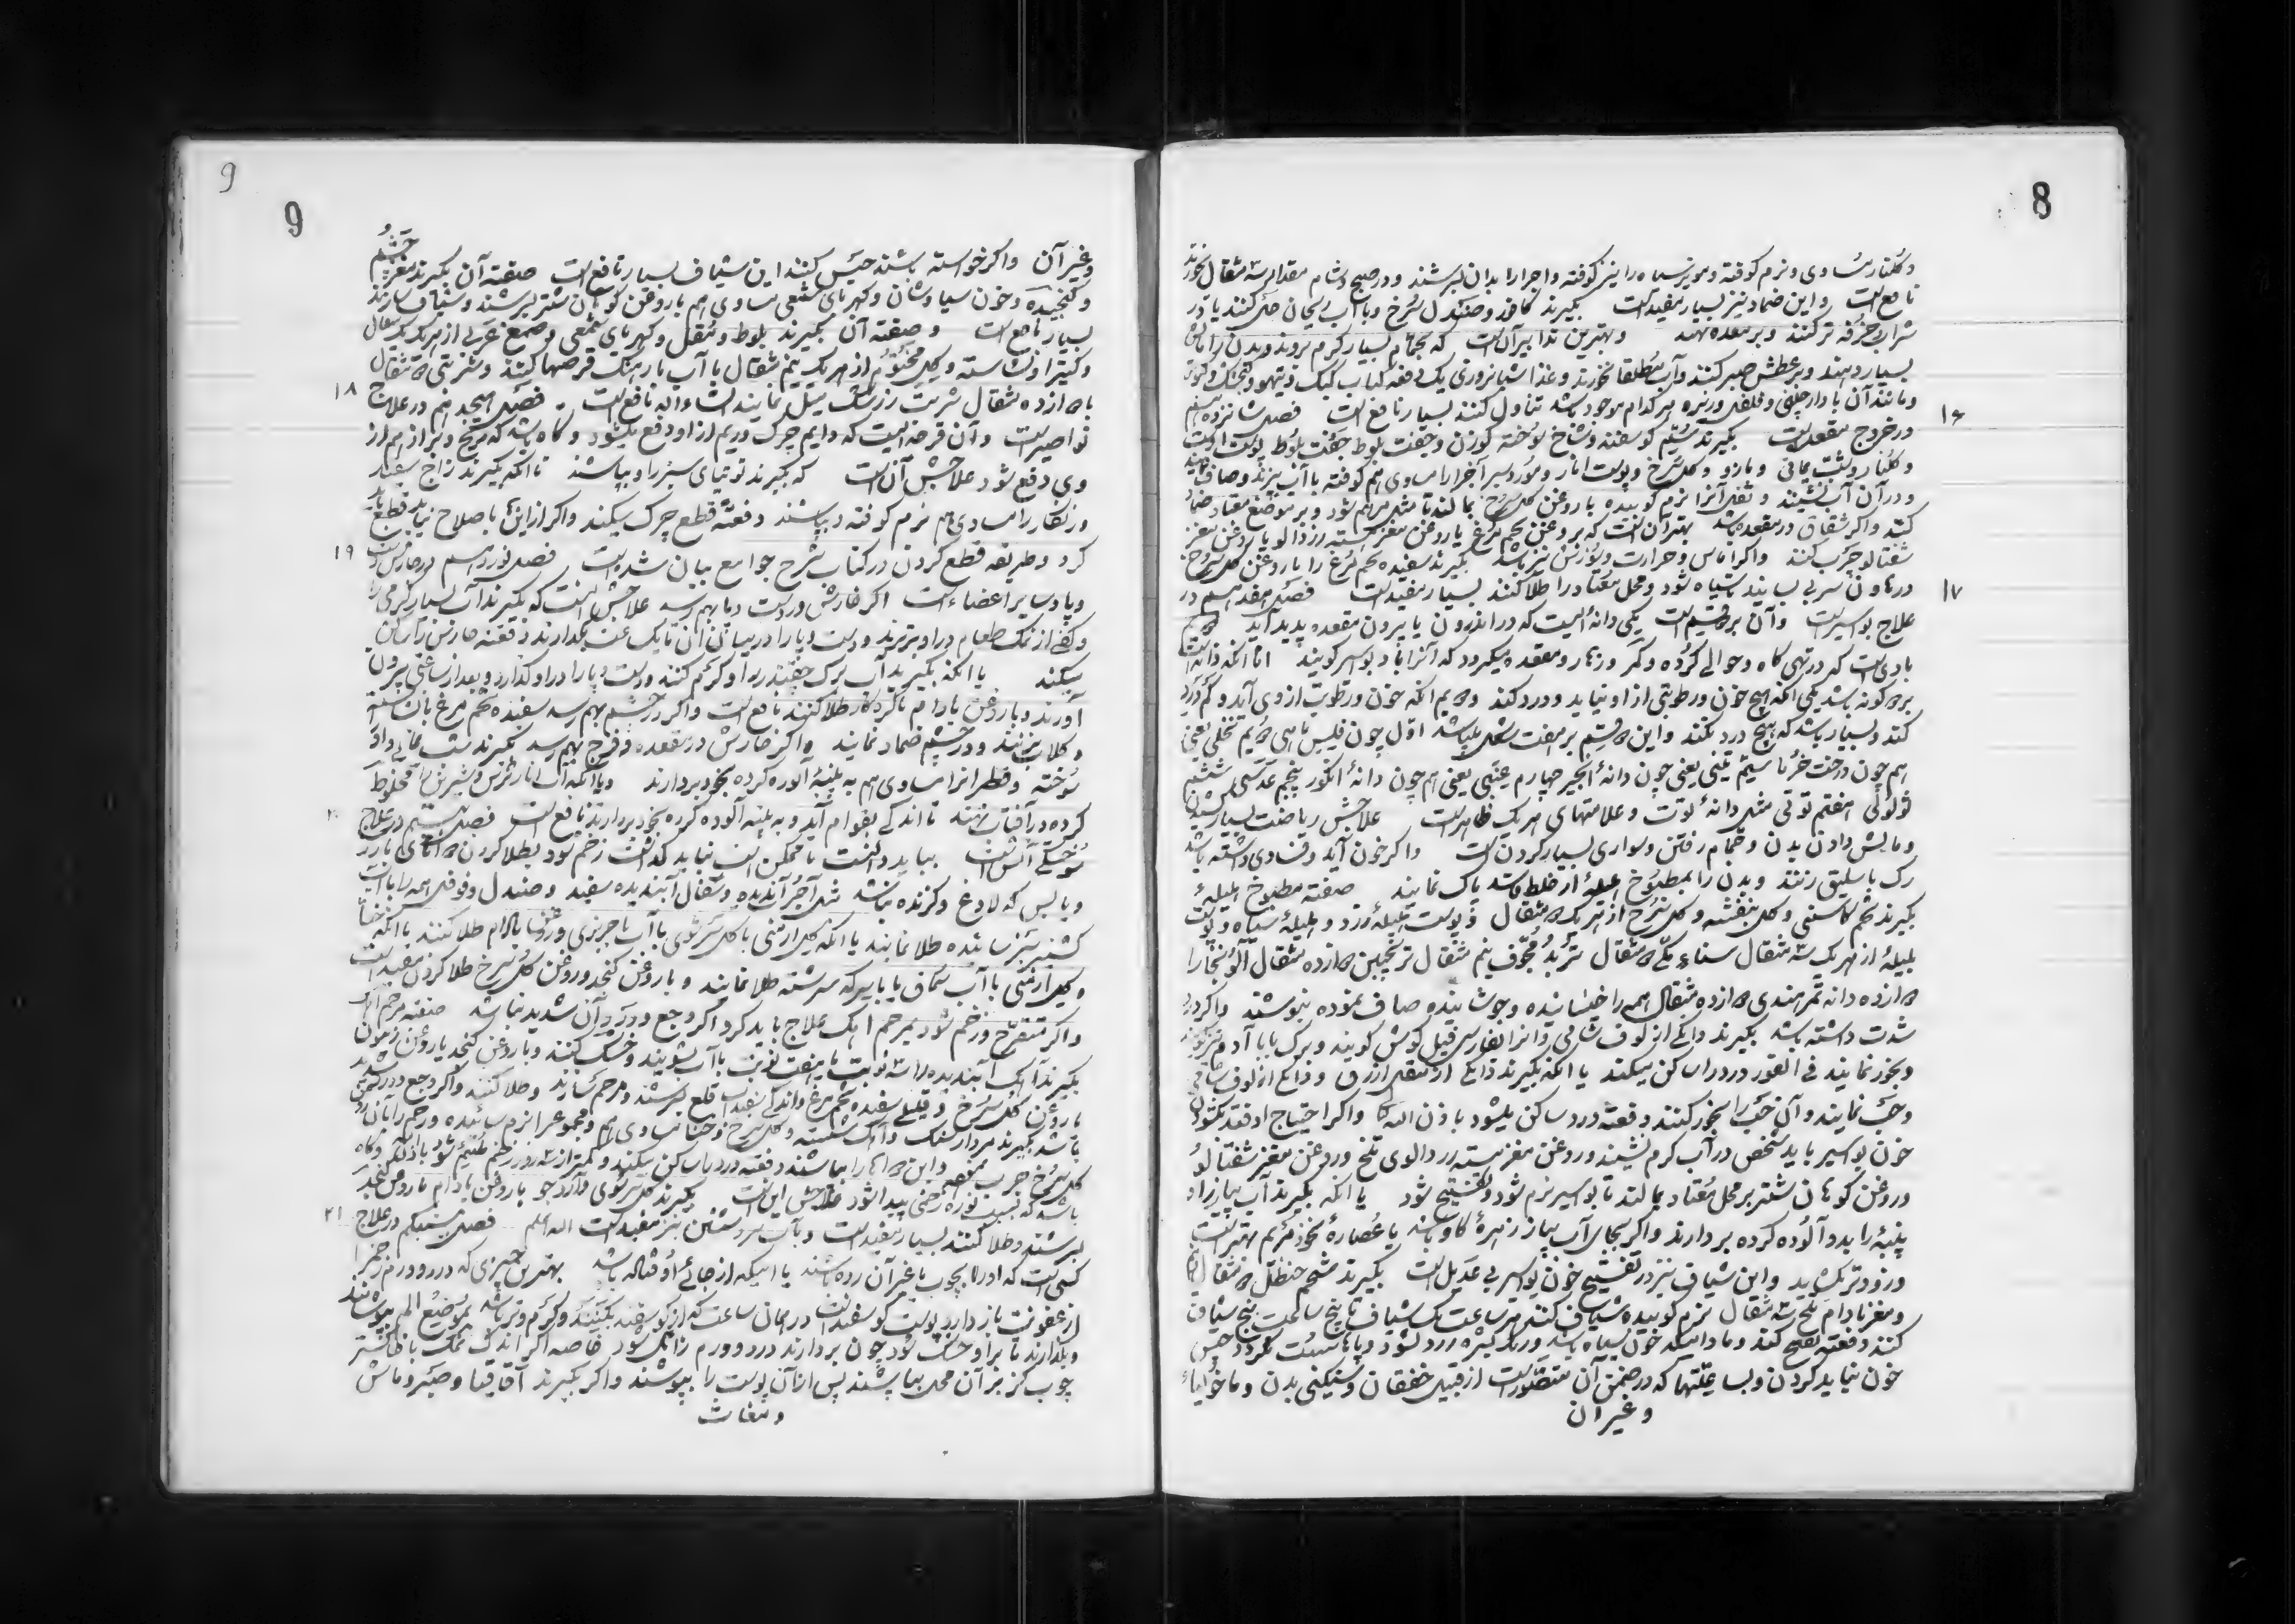 8
وگلنار مساوی و نرم کوفته و مویز سیاه را نیز کوفته و اجزا را بدان بسرشند و در صبح و شام مقدار سه مثقال بخورند
نافع است و این ضماد نیز بسیار مفید است بگیرند کافور و صندل سُرخ و با آب ریحان حل کنند یا در
شراب خرقه تر کنند و بر معده نهند و بهترین تدابیر آن است که بحمام بسیار گرم نروند و بدن را مالش
بسیار دهند و بر عطش صبر کنند و آب مطلقا نخورند و غذا شبانروزی یک دفعه کباب کبک و تیهو و گنجشک و کبوتر
و مانند آن با دارچینی و فلفل و زیره هر کدام موجود باشد تناول کنند بسیار نافع است فصل شانزدهم
۱۶
در خروج مقعد است بگیرند سُم گوسفند و شاخ سوخته گوزن و جفت بلوط پوست
و گلنار و شب یمانی و مازو و گل سرخ و پوست انار و مورد سبز آجزا را مساوی هم کوفته با آب بپزند و صاف نمایند
و در آن آب نشینند و ثفل آنرا نرم کوبیده با روغن گل سرخ بمالند تا مثل مرهم شود و بر موضع معتاد ضماد
کنند و اگر شقاق در مقعد باشد بهتر آن است که بروغن تخم مرغ یا روغن مغز هسته زردالو یا روغن مغز
شفتالو چرب کنند و اگر اماس و حرارت و سوزش نیز باشد بگیرند سفیده تخم مرغ را با روغن گل سرخ
در هاون سربی بسایند تا سیاه شود و محل معتاد را طلا کنند بسیار مفید است فصل هفدهم در
۱۷
علاج بواسیر است و آن بر دو قسم است یکی دانهٔ ایست که در اندرون یا بیرون مقعده پدید آید
بادیست که در تهی گاه و حوالی گرده و کمر و زهار و مقعده میگردد که آنرا باد بواسیر گویند امّا آنکه دانه است
بر گونه باشد یکی آنکه هیچ خون و رطوبتی از او نیاید و درد کند دویم آنکه خون و رطوبت از وی آید و کم درد
کند و بسیار باشد که هیچ درد نکند و این قسم بر هفت شکل میباشد اوّل چون فلس ماهی دویم نخلی یعنی
هم چون درخت خرما سیّم تینی یعنی چون دانهٔ انجیر چهارم عنبی یعنی هم چون دانهٔ انگور پنجم عدسی ششم
لؤلؤی هفتم توتی مثل دانهٔ توت و علامتهای هر یک ظاهر است علاجش ریاضت بسیار
و مالش دادن بدن و حمام رفتن و سواری بسیار کردن است و اگر خون آید و فسادی داشته باشد
رگ باسلیق زنند و بدن را بمطبوخ هلیلهٔ از خلط فاسد پاک نمایند صفته مطبوخ هلیلهٔ
بگیرند تخم کاسنی و گل بنفشه و گل سُرخ از هر یک مثقال و پوست هلیلهٔ زرد و هلیلهٔ سیاه و پوست
بلیلهٔ از هر یک سه مثقال سناء مکّی مثقال تُربد مُجوّف نیم مثقال ترنجبین ازده مثقال آلو بخارا
ازده دانه تمر هندی ازده مثقال همه را خیسانیده و جوشانیده صاف نموده بنوشند و اگر درد
شدت داشته باشد بگیرند دانگی از لوف شامی و آنرا بفارسی فیل گوش گویند و برگ بابا آدم نیز گویند
و بخور نمایند فی الفور درد را ساکن میکند یا آنکه بگیرند دانگی از مقل ازرق و دانگی از لوف شامی
و حب نمایند و آن حب را بخور کنند دفعة درد ساکن میشود باذن الله تعالی و اگر احتیاج افتد بگشودن
خون بواسیر باید شخص در آب گرم نشیند و روغن مغز هسته زردالوی تلخ و روغن مغز شفتالو
و روغن کوهان شتر بر محل معتاد بمالند تا بواسیر نرم شود و تفتیح شود یا آنکه بگیرند آب پیاز را و
پنبه را بدو آلوده کرده بردارند و اگر بجای آب پیاز زهرهٔ گاو باشد یا عُصارهٔ بخور مریم بهتر است
و زودتر گشاید و این شیاف نیز در تفتیح خون بواسیر بی عدیل است بگیرند شحم حنظل مثقال
و مغز بادام تلخ سه مثقال نرم کوبیده شیاف کنند هر ساعت یک شیاف تا پنج ساعت پنج شیاف
کنند دفعة تفتیح کند و مادامیکه خون سیاه باشد و رنگ بشره زرد نشود و پا سست نگردد حبس
خون نباید کردن و بسا علتها که در ضمن آن متصور است از قبیل خفقان و سنگینی بدن و مالخولیاء
و غیر آن
9
9
و غیر آن و اگر خواسته باشند حبس کنند این شیاف بسیار نافع است صفته آن بگیرند
و کنجیده و خون سیاوشان و کهربای شمعی مساوی هم با روغن کوهان شتر بسرشند و شیاف سازند
بسیار نافع است و صفته آن بگیرند بلوط و مقل و کهربای شمعی و صمغ عربی از هر یک یک مثقال
و کتیرا و نشاسته و گل مختوم از هر یک نیم مثقال با آب بارهنگ قرصها کنند و شربتی مثقال
با ازده مثقال شربت زرشک میل نمایند انشاء الله نافع است فصل هیجدهم در علاج
۱۸
نواصیر است و آن قرحه ایست که دایم چرک و ریم از او دفع میشود و گاه باشد که ریح و براز هم از
وی دفع شود علاجش آن است که بگیرند توتیای سبز را و بپاشند تا آنکه بگیرند زاج سفید
و زنگار را مساوی هم نرم کوفته و بپاشند دفعة قطع چرک میکند و اگر از اینها باصلاح نیاید قطع باید
کرد و طریقه قطع کردن در کتاب شرح جوامع بیان شده است فصل نوزدهم در خارش دست
۱۹
و پا و سایر اعضاء است اگر خارش در دست و پا بهم رسد علاجش اینست که بگیرند آب بسیار گرمی را
و کفی از نمک طعام در او بریزند و دست و پا را در میان آن تا یک ساعت بگذارند دفعة خارش را ساکن
میکند یا آنکه بگیرند آب برگ چغندر را و گرم کنند و دست و پا را در او گذارد و بعد از ساعتی بیرون
آورند و با روغن بادام تا گرده گاه طلا کنند نافع است و اگر در چشم بهم رسد سفیده تخم مرغ با نشاسته
و گلاب بزنند و در چشم ضماد نمایند و اگر خارش در مقعده و فرج بهم رسد بگیرند شب یمانی و
سوخته و قطران را مساوی هم به پنبهٔ آلوده کرده بخود بردارند و یا آنکه آب انار ترش و شیرش را مخلوط
کرده در آفتاب نهند تا اندکی بقوام آید و به پنبه آلوده کرده بخود بردارند نافع است فصل بیستم در علاج
۲۰
سوختگی آتش است بباید دانست تا ممکن است نباید گذاشت زخم شود بطلا کردن
و یابس که لادغ و گزنده نباشد مثل آجر آبندیده و سفال آبندیده سفید و صندل و فوفل همه را با آب
کشنیز سبز سائیده طلا نمایند یا آنکه گل ارمنی با گل سرشوی با آب یا جریزی و روغن بادام طلا کنند یا آنکه حنا
و گل ارمنی با آب سماق یا با سرکه سرشته طلا نمایند و با روغن کنجد و روغن گل سرخ طلا کردن مفید است
و اگر متقرّح و زخم شود بمرحم آهک علاج باید کرد اگر وجع و درد آن شدید نباشد صفته مرحم آهک
بگیرند آهک آبندیده را سه نوبت یا هفت نوبت با آب بشویند و خشک کنند و با روغن کنجد یا روغن زیتون
یا روغن گل سُرخ و قدری سفیده تخم مرغ و اندکی سفیداب قلع بسرشند و مرحم سازند و طلا کنند و اگر وجع و درد شدید
باشد بگیرند مردار سنگ و آهک شسته و گل سرخ و حنا مساوی هم و مجموع را نرم سائیده و زخم را با روغن
گل سُرخ چرب نموده و این را بپاشند دفعة درد را ساکن میکند و کمتر از سه روز زخم ملتئم شود باذن الله و گاه
باشد که بسبب نوره زخمی پیدا شود علاجش این است بگیرند گل سرشوی و آرد جو با روغن بادام یا روغن کنجد
بسرشند و طلا کنند بسیار مفید است و بآب سرد شستن نیز مفید است الله اعلم فصل بیست و یکم در علاج
۲۱
کسی است که او را بچوب یا غیر آن زده باشند یا اینکه از جائی اوفتاده باشد بهترین چیزی که درد و ورم زخم را
از عفونت باز دارد پوست گوسفند است در همان ساعت که از گوسفند بکنند و گرم و تر باشد بموضع الم بپوشانند
و بگذارند تا بر او خشک شود چون بردارند درد و ورم زایل شود خاصه اگر اندک نمک با خاکستر
چوب گز بر آن محل بپاشند پس از آن پوست را بپوشند و اگر بگیرند آقاقیا و صبر و ماش
و مغاث